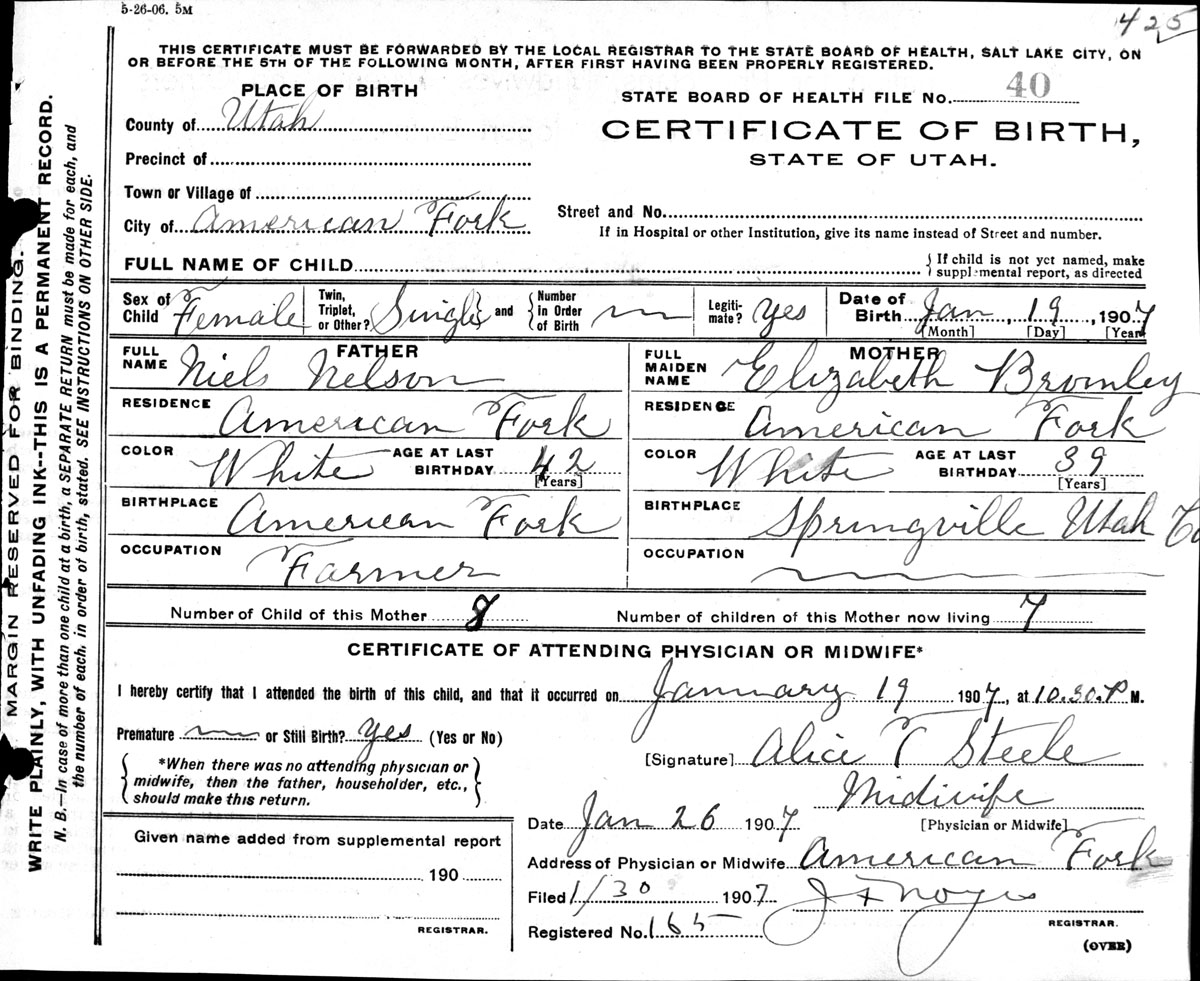 5-26-06. 5M
425
THIS CERTIFICATE MUST BE FORWARDED BY THE LOCAL REGISTRAR TO THE STATE BOARD OF HEALTH, SALT LAKE CITY, ON
OR BEFORE THE 5TH OF THE FOLLOWING MONTH, AFTER FIRST HAVING BEEN PROPERLY REGISTERED.
PLACE OF BIRTH
STATE BOARD OF HEALTH FILE No. 40
County of Utah
CERTIFICATE OF BIRTH,
STATE OF UTAH.
Precinct of
Town or Village of
City of American Fork
Street and No.
If in Hospital or other Institution, give its name instead of Street and number.
FULL NAME OF CHILD
{ If child is not yet named, make
supplemental report, as directed
Sex of Child Female
Twin, Triplet, or Other? Single } and { Number In Order of Birth
Legitimate? Yes
Date of Birth Jan, 19, 1907
[Month] [Day] [Year]
FATHER
FULL NAME Niels Nelson
RESIDENCE American Fork
COLOR White AGE AT LAST BIRTHDAY 42
[Years]
BIRTHPLACE American Fork
OCCUPATION Farmer
MOTHER
FULL MAIDEN NAME Elizabeth Bromley
RESIDENCE American Fork
COLOR White AGE AT LAST BIRTHDAY 39
[Years]
BIRTHPLACE Springville Utah Co
OCCUPATION
Number of Child of this Mother 8 Number of children of this Mother now living 7
CERTIFICATE OF ATTENDING PHYSICIAN OR MIDWIFE*
I hereby certify that I attended the birth of this child, and that it occurred on January 19 1907, at 10.30.P M.
Premature or Still Birth? Yes (Yes or No)
[Signature] Alice T Steele
{ *When there was no attending physician or
midwife, then the father, householder, etc.,
should make this return. }
Midwife
[Physician or Midwife]
Date Jan 26 1907
Address of Physician or Midwife American Fork
Filed 1/30 1907 J F Noyes
REGISTRAR.
Registered No. 165
(OVER)
Given name added from supplemental report
190
REGISTRAR.
MARGIN RESERVED FOR BINDING.
WRITE PLAINLY, WITH UNFADING INK--THIS IS A PERMANENT RECORD.
N. B.—In case of more than one child at a birth, a SEPARATE RETURN must be made for each, and
the number of each, in order of birth, stated. SEE INSTRUCTIONS ON OTHER SIDE.